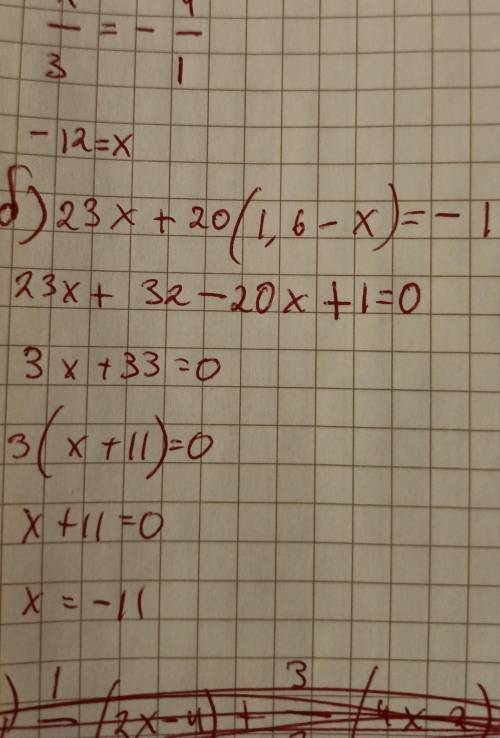 — = - —
3 1
-12=x
б) 23x + 20(1,6 - x) = -1
23x + 32 - 20x + 1 = 0
3x + 33 = 0
3(x + 11) = 0
x + 11 = 0
x = -11
1 3
) — (2x-4) + — (4x-2)